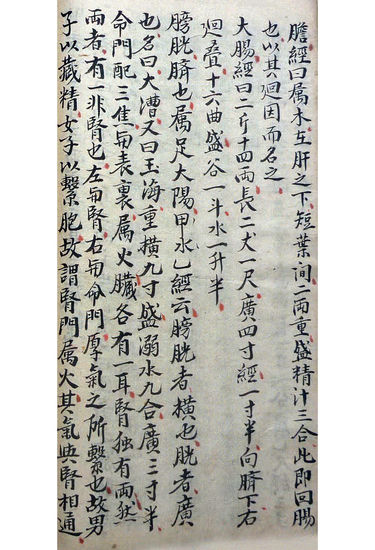 膽經曰属木在肝之下短葉间二兩重盛精汁三合此即回腸
也以其迴因而名之
大腸經曰二斤十四兩長二丈一尺廣四寸經一寸半向臍下右
迴叠十六曲盛谷一斗水一升半
膀胱臍也属足大陽甲水乙經云膀胱者横也胱者廣
也名曰大漕又曰王海重横九寸盛溺水九合廣三寸半
命門配三焦与表裏属火臓各有一耳腎独有兩然
兩者有一非腎也左与腎右与命門厚氣之所繫也故男
子以藏精女子以繫胞故謂腎門属火其氣与腎相通